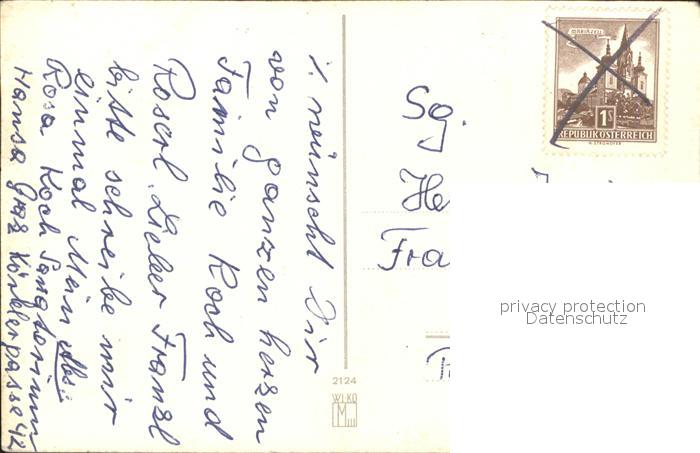 /. wünscht Dir
von ganzen herzen
Familie Koch und
Roserl. Lieber Franzl
bitte schreibe mir
einmal Mein Abs.:
Rosa Koch Sanatorium
Hansa Graz Körblergasse 42
MARIAZELL
1S
REPUBLIK ÖSTERREICH
Fra
2124
WIKO
privacy protection
Datenschutz